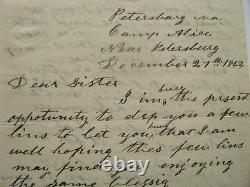 Petersburg va
Camp Alice
Near Petersburg
December 21th 1862
Dear Sister
I im, the present
opportunity to drop you a few
lins to let you, that I am
well hoping thes few lins
may find you enjoying
the same blessig